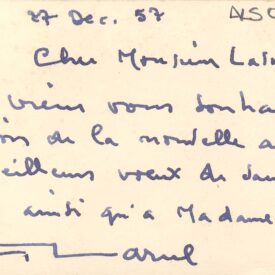 27 Dec. 57
Cher Monsieur
viens vous souha
de la nouvelle a
eilleurs voeux de san
ainsi qu'à Madame